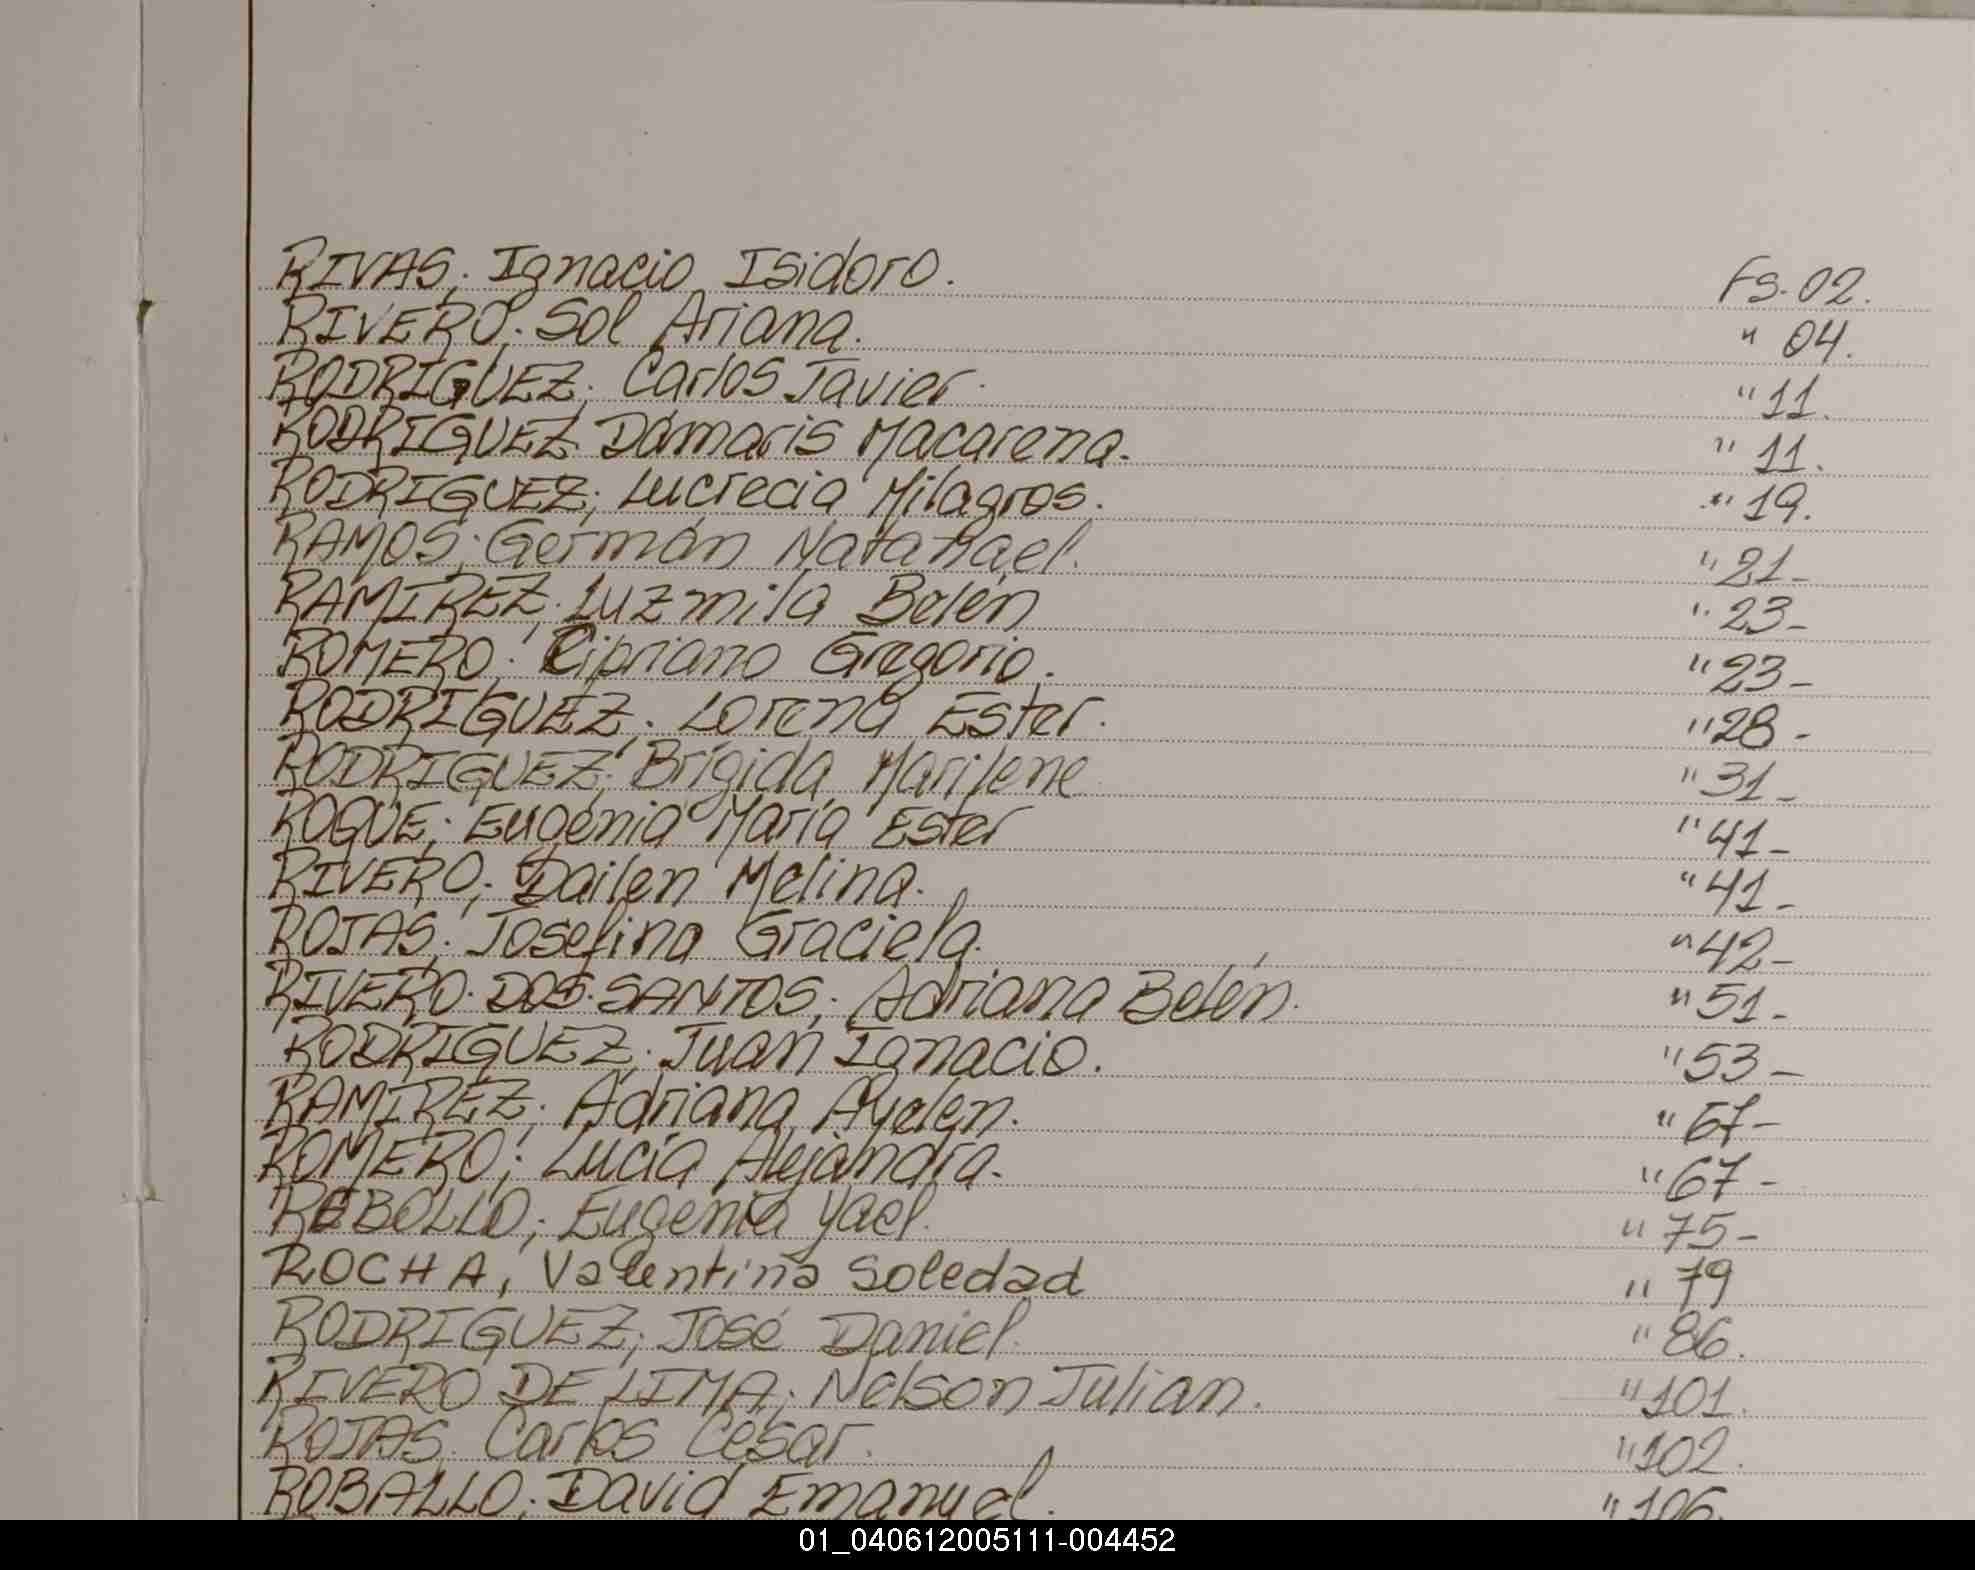 RIVAS; Ignacio Isidoro. Fs. 02.
RIVERO; Sol Ariana. " 04.
RODRIGUEZ; Carlos Javier. " 11.
RODRIGUEZ Dámaris Macarena. " 11.
RODRIGUEZ; Lucrecia Milagros. " 19.
RAMOS; Germán Natanael. " 21-
RAMIREZ; Luzmila Belén " 23-
ROMERO; Cipriano Gregorio. " 23-
RODRIGUEZ; Lorena Ester. " 28-
RODRIGUEZ; Brígida Marilene " 31-
ROQUE; Eugenia María Ester " 41-
RIVERO; Dailen Melina. " 41-
ROJAS; Josefina Graciela. " 42-
RIVERO. DOS. SANTOS; Adriana Belén. " 51-
RODRIGUEZ; Juan Ignacio. " 53-
RAMIREZ; Adriana Ayelen. " 67-
ROMERO; Lucía Alejandra. " 67-
REBOLLO; Eugenia Yael. " 75-
ROCHA, Valentina Soledad " 79
RODRIGUEZ; José Daniel. " 86.
RIVERO DE LIMA; Nelson Julian. " 101.
ROJAS. Carlos César. " 102.
ROBALLO; David Emanuel. " 106.
01_040612005111-004452